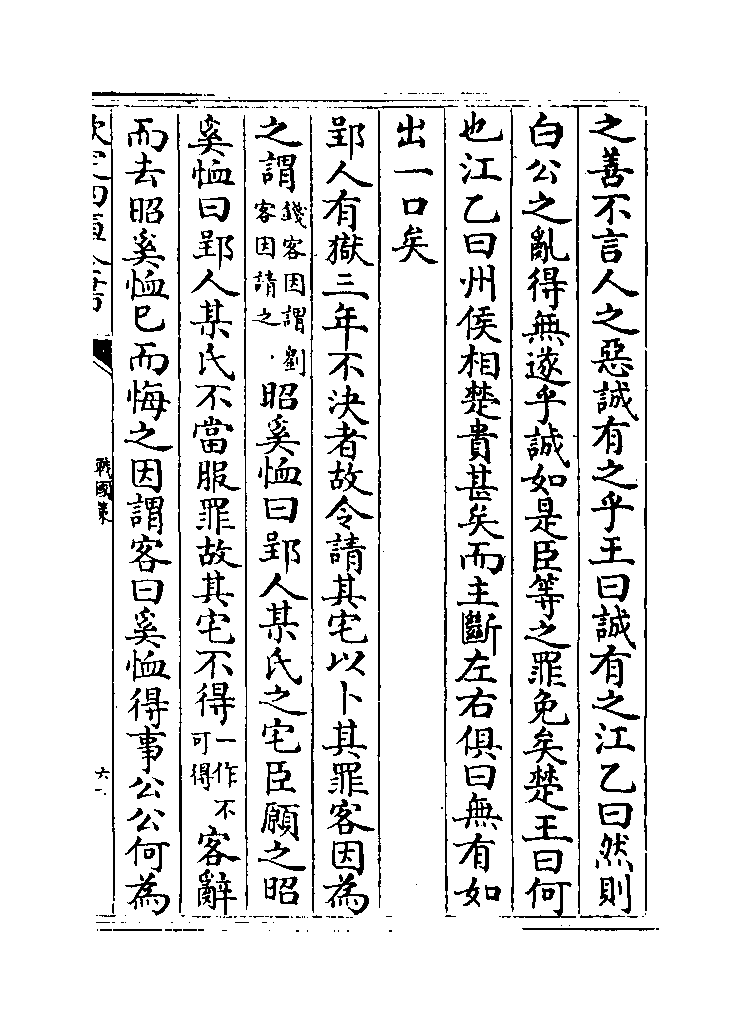 之善不言人之惡誠有之乎王曰誠有之江乙曰然則
白公之亂得無遂乎誠如是臣等之罪免矣楚王曰何
也江乙曰州侯相楚貴甚矣而主斷左右俱曰無有如
出一口矣
郢人有獄三年不決者故令請其宅以卜其罪客因為
之謂錢客因謂劉客因請之昭奚恤曰郢人某氏之宅臣願之昭
奚恤曰郢人某氏不當服罪故其宅不得一作不可得客辭
而去昭奚恤已而悔之因謂客曰奚恤得事公公何為
欽定四庫全書
戰國策
六